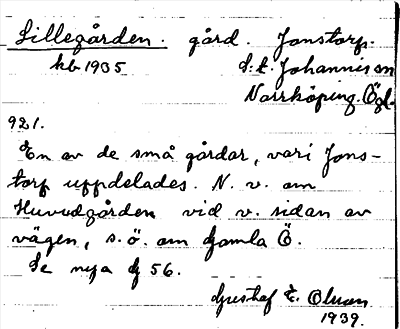 Lillegården. gård. Jonstorp.
kb 1935 S:t Johannis sn
Norrköping. Ögl.
921.
En av de små gårdar, vari Jons-
torp uppdelades. N. v. om
Huvudgården vid v. sidan av
vägen, s.ö. om Gamla Ö.
Se nya G 56.
Gustaf E. Olson
1939.